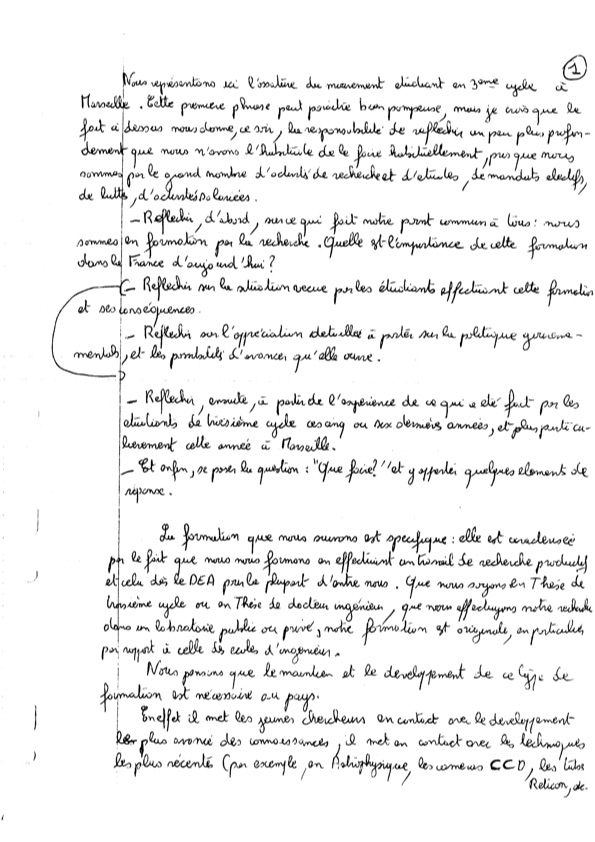 1
Nous représentons ici l'ossature du mouvement etudiant en 3eme cycle à
Marseille. Cette premiere phrase peut paraitre bien pompeuse, mais je crois que le
fait ci dessus nous donne, ce soir, la responsabilité de reflechir un peu plus profon-
dement que nous n'avons l'habitude de le faire habituellement, pris que nous
sommes par le grand nombre d'activités de recherche et d'etudes, de mandats electifs,
de lutte, d'activités salariées.
- Reflechir, d'abord, sur ce qui fait notre point commun à tous : nous
sommes en formation par la recherche. Quelle est l'importance de cette formation
dans la France d'aujourd'hui ?
- Reflechir sur la situation vecue par les étudiants effectuant cette formation
et ses consequences.
- Reflechir sur l'appreciation detaillee à porter sur la politique gouverne-
mentale, et les possibilités d'avancer qu'elle ouvre.
- Reflechir, ensuite, à partir de l'experience de ce qui a eté fait par les
etudiants de troisième cycle ces cinq ou six derniers années, et plus particu-
lierement cette année à Marseille.
- Et enfin, se poser la question : "Que faire?" et y apporter quelques elements de
reponse.
La formation que nous suivons est specifique : elle est caracterisée
par le fait que nous nous formons en effectuant un travail de recherche productif
et cela dès le DEA pour la plupart d'entre nous. Que nous soyons en These de
troisième cycle ou en These de docteur ingenieur, que nous effectuyons notre recherche
dans un laboratoire public ou privé, notre formation est originale, en particulier
par rapport à celle des ecoles d'ingenieurs.
Nous pensons que le maintien et le developpement de ce type de
formation est nécessaire au pays.
En effet il met les jeunes chercheurs en contact avec le developpement
le plus avancé des connaissances, il met en contact avec les techniques
les plus récentes (par exemple, en Astrophysique, les cameras CCD, les tubes
Reticon, etc.